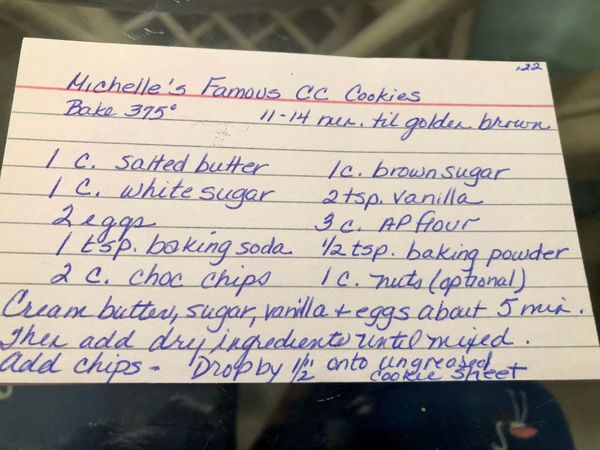 '22
Michelle's Famous CC Cookies
Bake 375° 11-14 min. til golden brown
1 c. salted butter 1 c. brown sugar
1 c. white sugar 2 tsp. vanilla
2 eggs 3 c. AP flour
1 tsp. baking soda 1/2 tsp. baking powder
2 c. choc chips 1 c. nuts (optional)
Cream butter, sugar, vanilla + eggs about 5 min.
Then add dry ingredients until mixed.
Add chips - Drop by 1 1/2" onto ungreased
cookie sheet